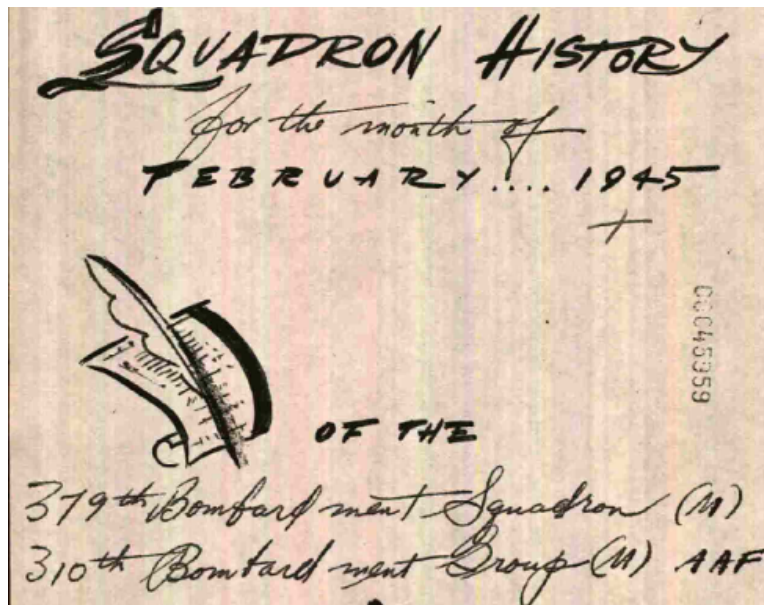 SQUADRON HISTORY
for the month of
FEBRUARY.... 1945
OF THE
379th Bombardment Squadron (M)
310th Bombardment Group (M) AAF